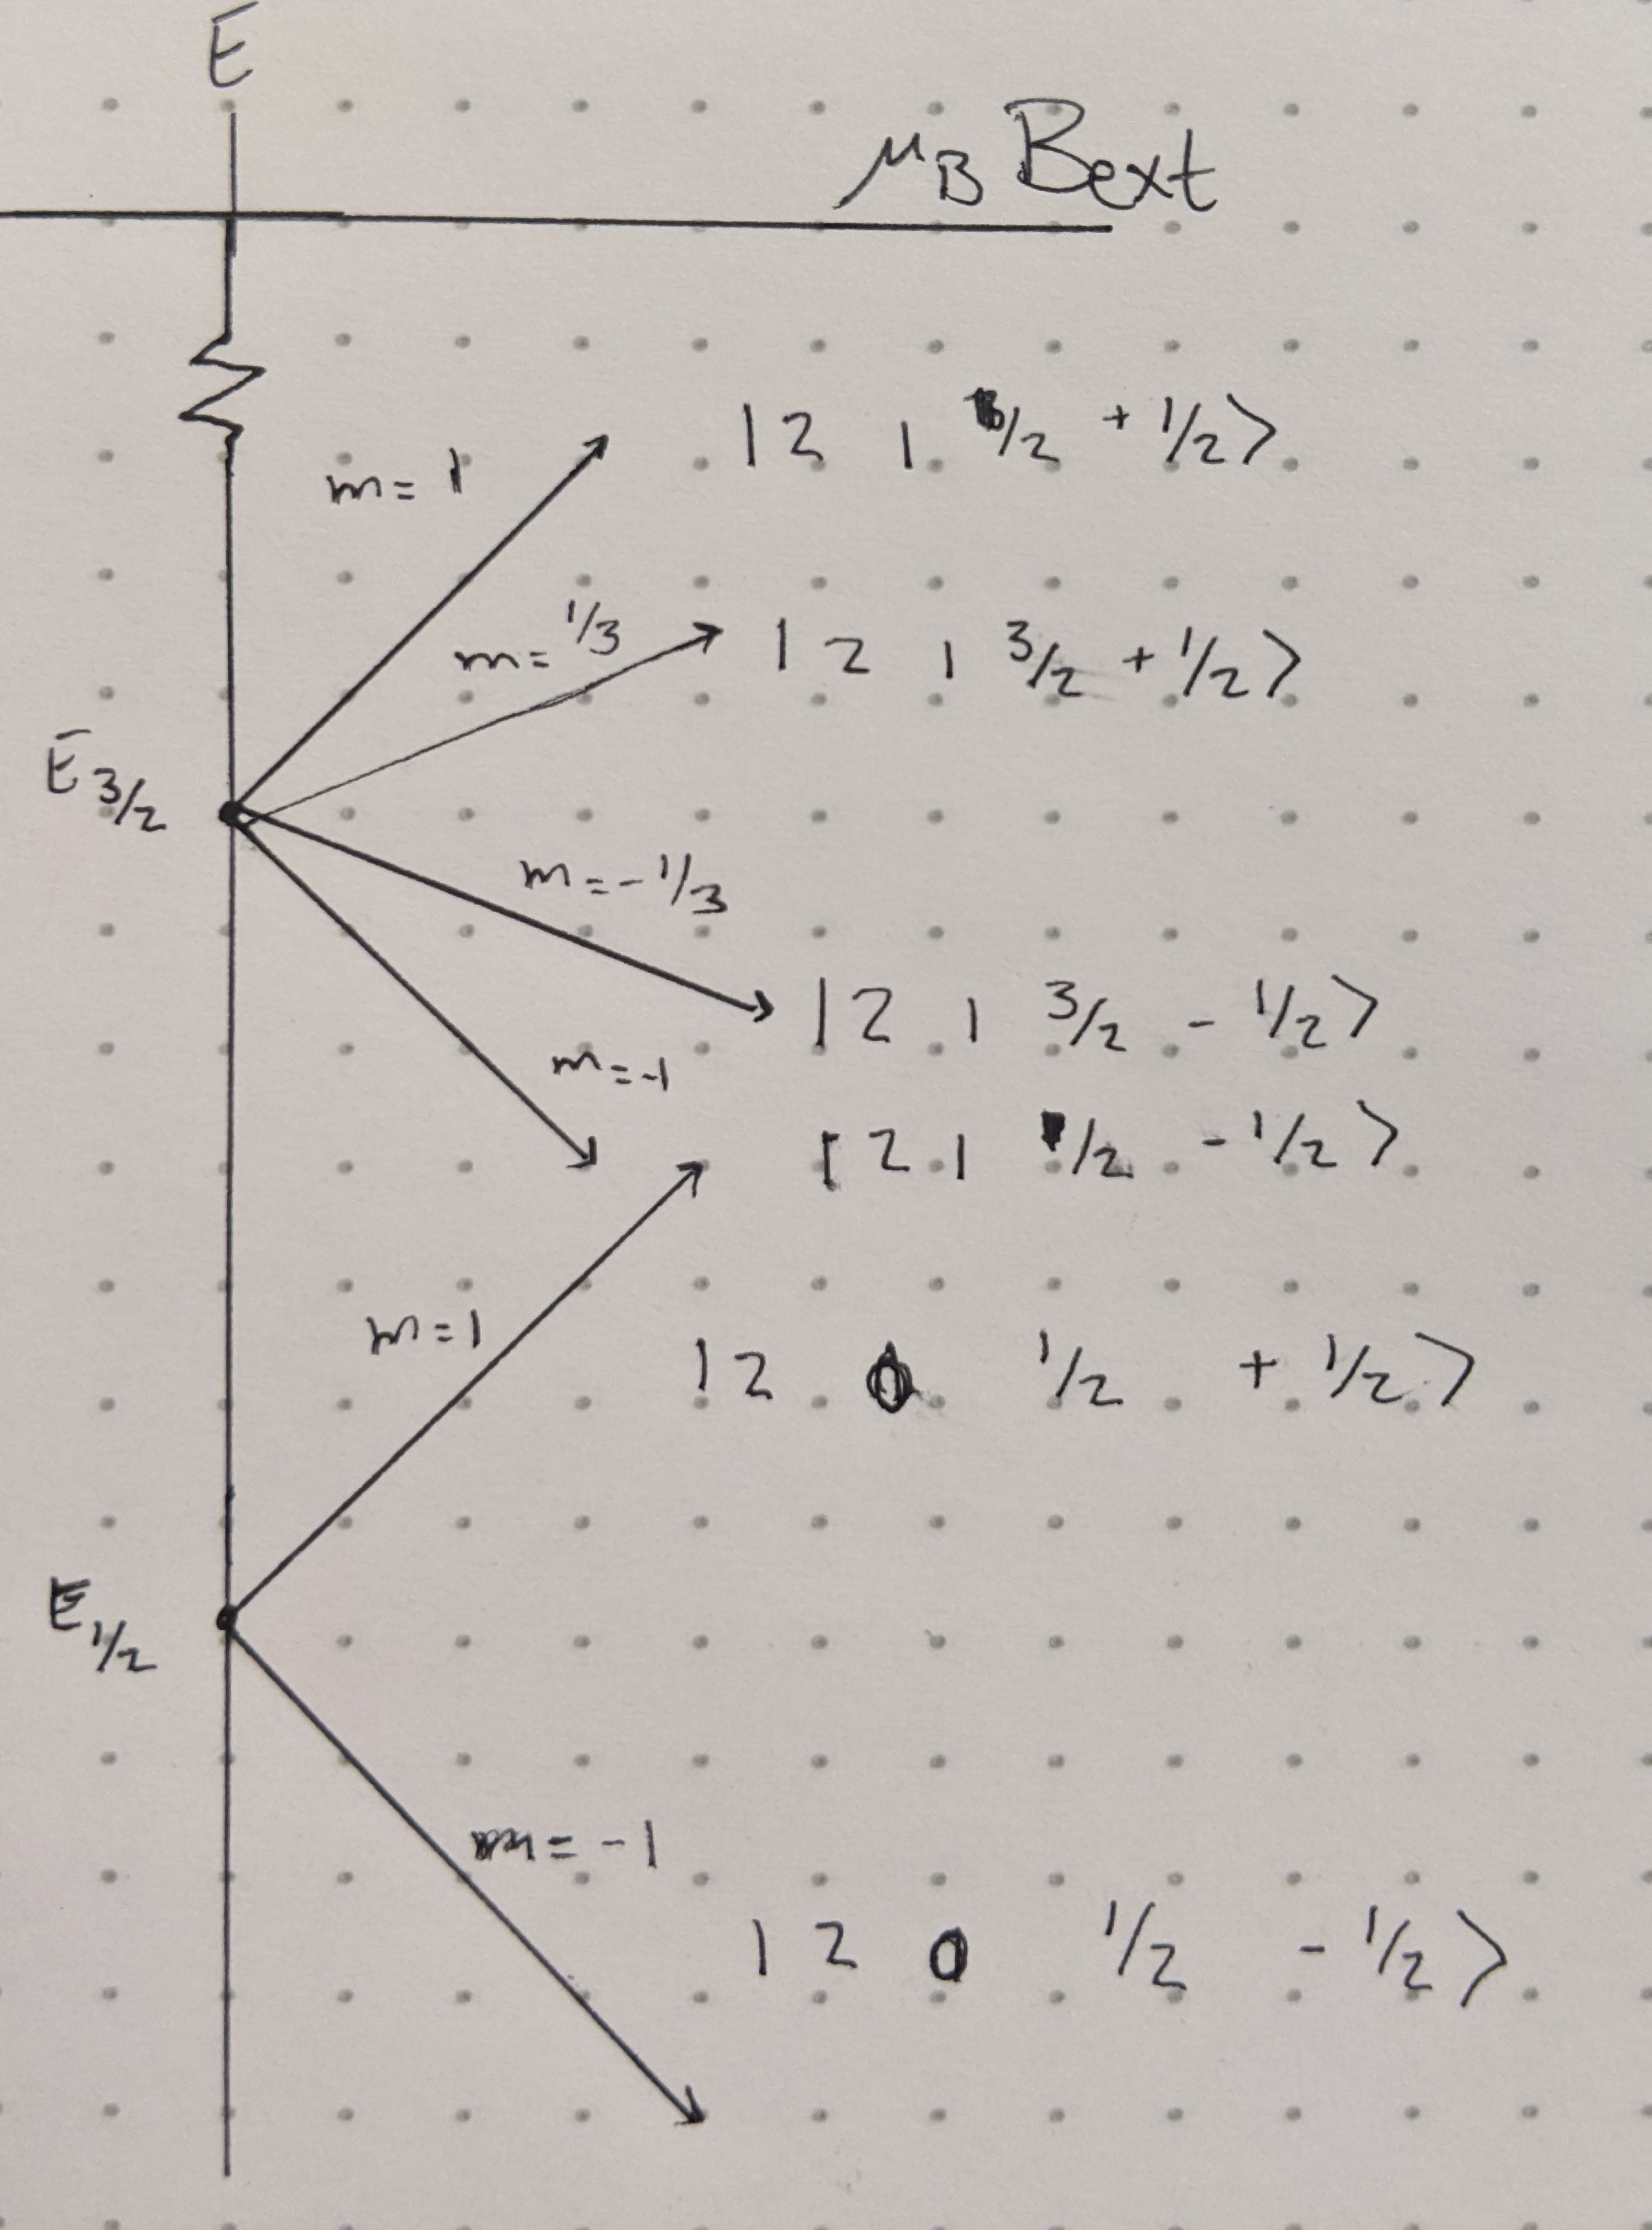 E
μB Bext
m = 1
| 2 1 /2 + 1/2 >
m = 1/3
| 2 1 3/2 + 1/2 >
E 3/2
m = - 1/3
| 2 1 3/2 - 1/2 >
m = -1
| 2 1 1/2 - 1/2 >
m = 1
| 2 0 1/2 + 1/2 >
E 1/2
m = -1
| 2 0 1/2 - 1/2 >